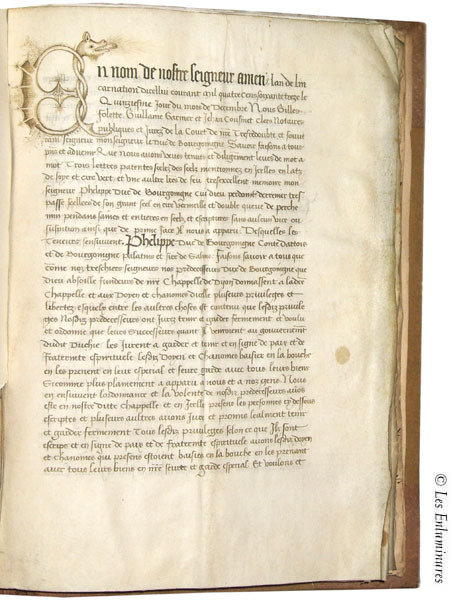 En nom de nostre seigneur amen lan de lin
carnation dicellui courant mil quatre cens soixante treze le
Quinziesme Jour du mois de Decembre Nous Gilles
folette Guillame Garnier et Jehan Cousinet Clers Notaires
publiques et Jurez de la Court de nre Tresredoubte et souve
rain seigneur monseigneur le Duc de Bourgoingne Savoir faisons a tous
pns et advenir Que nous avons veues tenues et diligement leues de mot a
mot Trois lettres patentes seelees des seelz mentionnez en Jcelles en latz
de soye et cire vert et une aultre lres de feu tresexcellent memoire mon
seigneur Phelippe Duc de Bourgoingne Cui dieu perdoint derrenier tres
passe seellees de son grant seel en cire vermeille et double queue de perche
min pendans saines et entieres en seelz et escriptures sans aulcun vice ou
suspition ainsi que de prime face Il nous a apparu Desquelles les
Teneurs sensuivent Phelippe Duc de Bourgoingne Conte Dartois
et de Bourgoingne palatins et sire de Salins Faisons savoir a tous que
come noz treschiers seigneurs noz predecesseurs Ducs de Bourgoingne que
Dieu absoille fundeurs de nre Chappelle de Dijon donnassent a ladce
Chappelle et aux Doyen et chanoines dicelle plusieurs privileges et
libertez esquelx entre les aultres choses est contenu que lesdiz privile
ges Nosdiz predecesseurs ont Jurez tenir et garder fermement et voulu
et ordonne que leurs Successeurs quant Ilz venroient au gouvernement
dudit Duchie les Jurent a garder et tenir et en signe de paix et de
fraternite espirituele lesdiz Doyen et Chanoines baisier en la bouche
en les prenent en leur especial et seure garde avec tous leurs biens
Sicomme plus plainement a apparu a nous et a noz gens Nous
en ensuivent lordonnance et la volente de nosdiz predecesseurs avons
este en nostre dicte chappelle et en Jcelle presens les personnes cy dessoubs
escriptes et plusieurs aultres avons Jure et promis lealment tenir
et garder fermement Tous lesdiz privileges selon ce que Jlz sont
escrips et en signe de paix et de fraternite espirituele avons lesdiz doyen
et chanoines qui presens estoient baisies en la bouche en les prenant
avec tous leurs biens en nre seurte et garde especial Et voulons et
© Les Enluminures